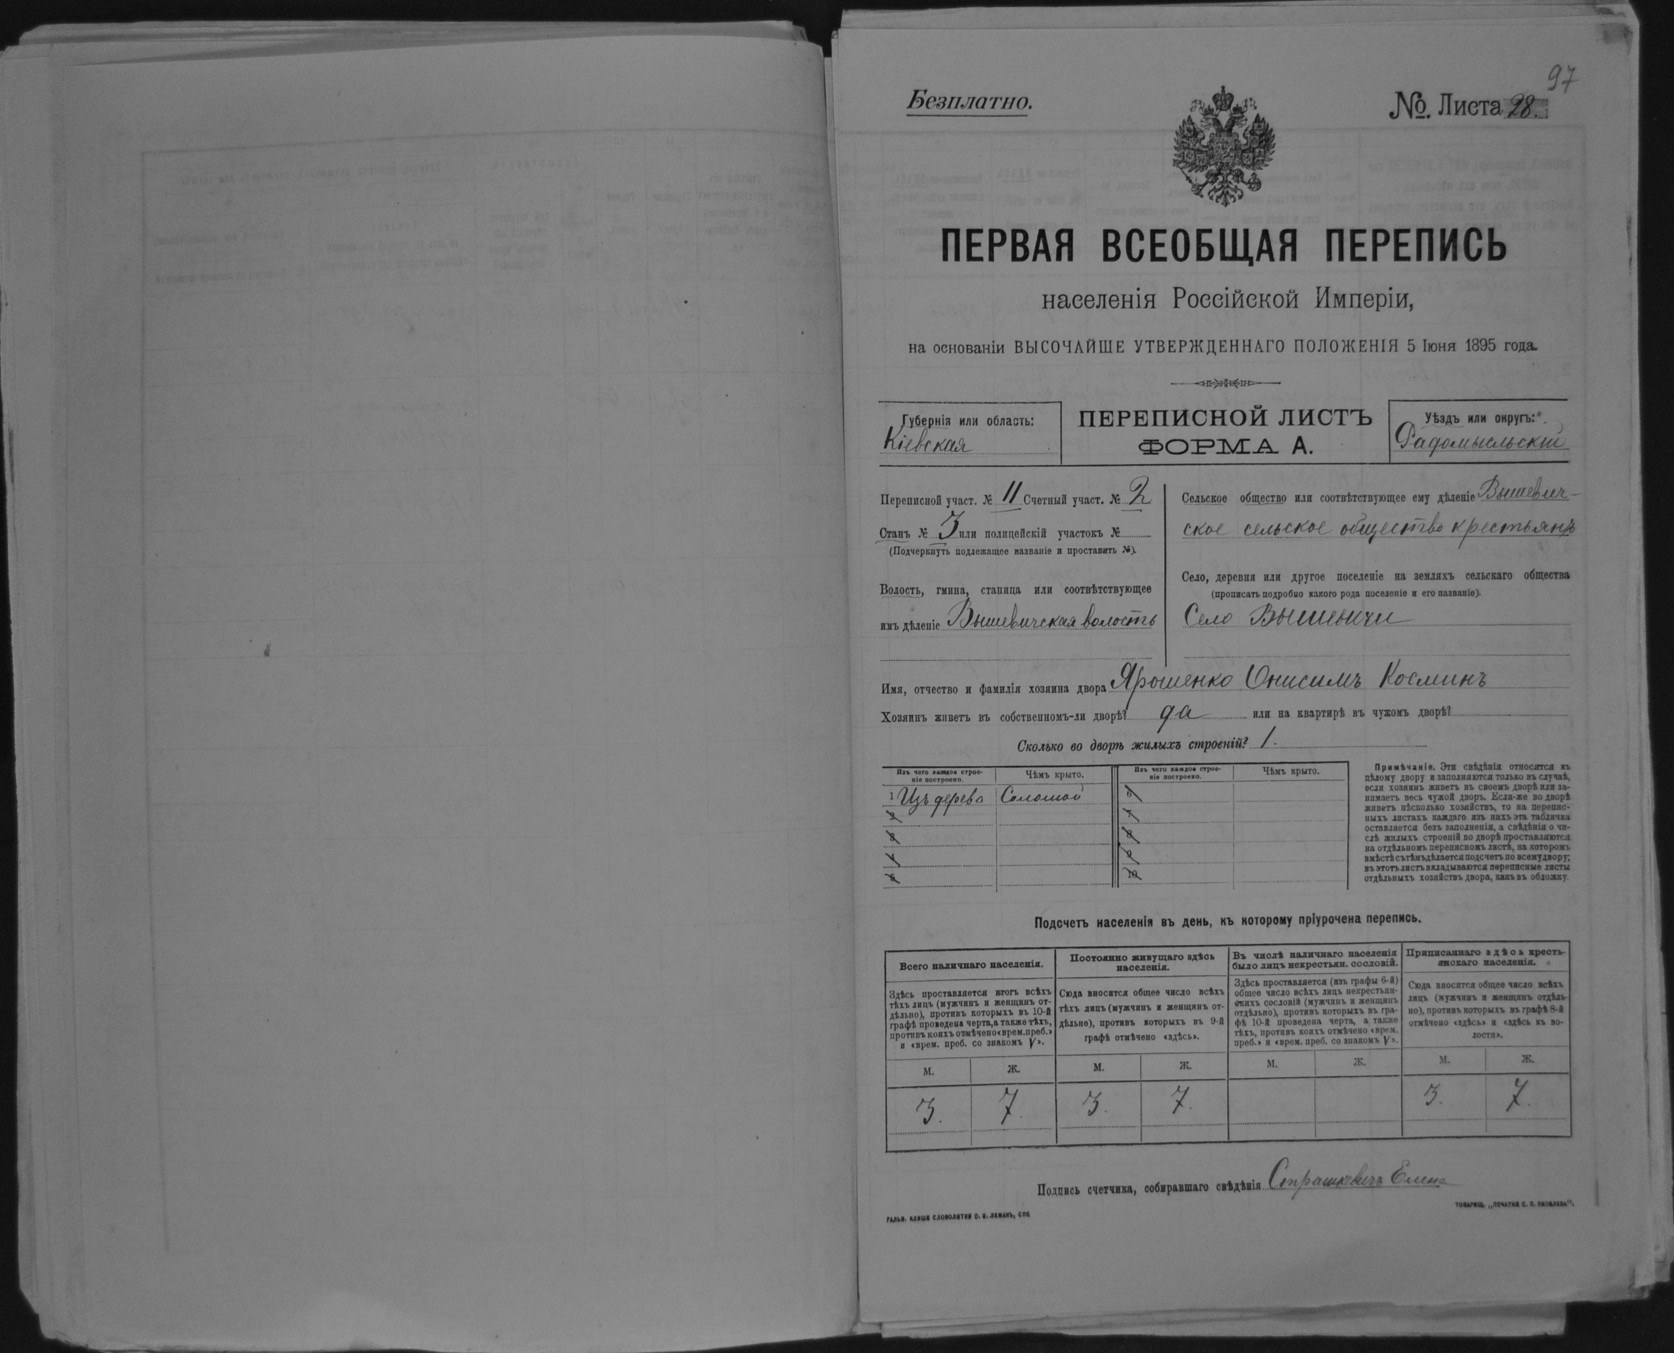 97
Безплатно.
№. Листа 28.
ПЕРВАЯ ВСЕОБЩАЯ ПЕРЕПИСЬ
населенія Россійской Имперіи,
на основаніи ВЫСОЧАЙШЕ УТВЕРЖДЕННАГО ПОЛОЖЕНІЯ 5 Іюня 1895 года.
Губернія или область:
Кіевская
ПЕРЕПИСНОЙ ЛИСТЪ
ФОРМА А.
Уѣздъ или округъ:
Радомысльскій
Переписной участ. № 11 Счетный участ. № 2
Станъ № 3 или полицейскій участокъ №
(Подчеркнуть подлежащее названіе и проставить №).
Волость, гмина, станица или соотвѣтствующее
имъ дѣленіе Вышевичская волость
Сельское общество или соотвѣтствующее ему дѣленіе Вышевич-
ское сельское общество крестьянъ
Село, деревня или другое поселеніе на земляхъ сельскаго общества
(прописать подробно какого рода поселеніе и его названіе).
Село Вышевичи
Имя, отчество и фамилія хозяина двора Ярошенко Онисимъ Косминъ
Хозяинъ живетъ въ собственномъ-ли дворѣ? да или на квартирѣ въ чужомъ дворѣ?
Сколько во дворѣ жилыхъ строеній? 1.
Изъ чего каждое строе-
ніе построено.
Чѣмъ крыто.
Изъ чего каждое строе-
ніе построено.
Чѣмъ крыто.
1 Изъ дерева Соломой
Примѣчаніе. Эти свѣдѣнія относятся къ
цѣлому двору и заполняются только въ случаѣ,
если хозяинъ живетъ въ своемъ дворѣ или за-
нимаетъ весь чужой дворъ. Если-же во дворѣ
живетъ нѣсколько хозяйствъ, то на перепис-
ныхъ листахъ каждаго изъ нихъ эта табличка
оставляется безъ заполненія, а свѣдѣнія о чи-
слѣ жилыхъ строеній во дворѣ проставляются
на отдѣльномъ переписномъ листѣ, на которомъ
вмѣстѣ съ тѣмъ дѣлается подсчетъ по всему двору;
въ этотъ листъ вкладываются переписные листы
отдѣльныхъ хозяйствъ двора, какъ въ обложку.
Подсчетъ населенія въ день, къ которому пріурочена перепись.
Всего наличнаго населенія.
Здѣсь проставляется итогъ всѣхъ
тѣхъ лицъ (мужчинъ и женщинъ от-
дѣльно), противъ которыхъ въ 10-й
графѣ проведена черта, а также тѣхъ,
противъ коихъ отмѣчено «врем. преб.»
и «врем. преб. со знакомъ V».
Постоянно живущаго здѣсь
населенія.
Сюда вносится общее число всѣхъ
тѣхъ лицъ (мужчинъ и женщинъ от-
дѣльно), противъ которыхъ въ 9-й
графѣ отмѣчено «здѣсь».
Въ числѣ наличнаго населенія
было лицъ некрестьян. сословій.
Здѣсь проставляется (изъ графы 6-й)
общее число всѣхъ лицъ некрестьян-
скихъ сословій (мужчинъ и женщинъ
отдѣльно), противъ которыхъ въ гра-
фѣ 10-й проведена черта, а также
тѣхъ, противъ коихъ отмѣчено «врем.
преб.» и «врем. преб. со знакомъ V».
Приписаннаго здѣсь кресть-
янскаго населенія.
Сюда вносится общее число всѣхъ
лицъ (мужчинъ и женщинъ отдѣль-
но), противъ которыхъ въ графѣ 8-й
отмѣчено «здѣсь» и «здѣсь въ во-
лости».
М. Ж. М. Ж. М. Ж. М. Ж.
3. 7. 3. 7. 3. 7.
Подпись счетчика, собиравшаго свѣдѣнія Страшкевичъ Елена
ГАЛЬВ. КЛИШЕ СЛОВОЛИТНИ О. И. ЛЕМАНЪ, СПБ.
ТОВАРИЩ. „ПЕЧАТНЯ С. П. ЯКОВЛЕВА".